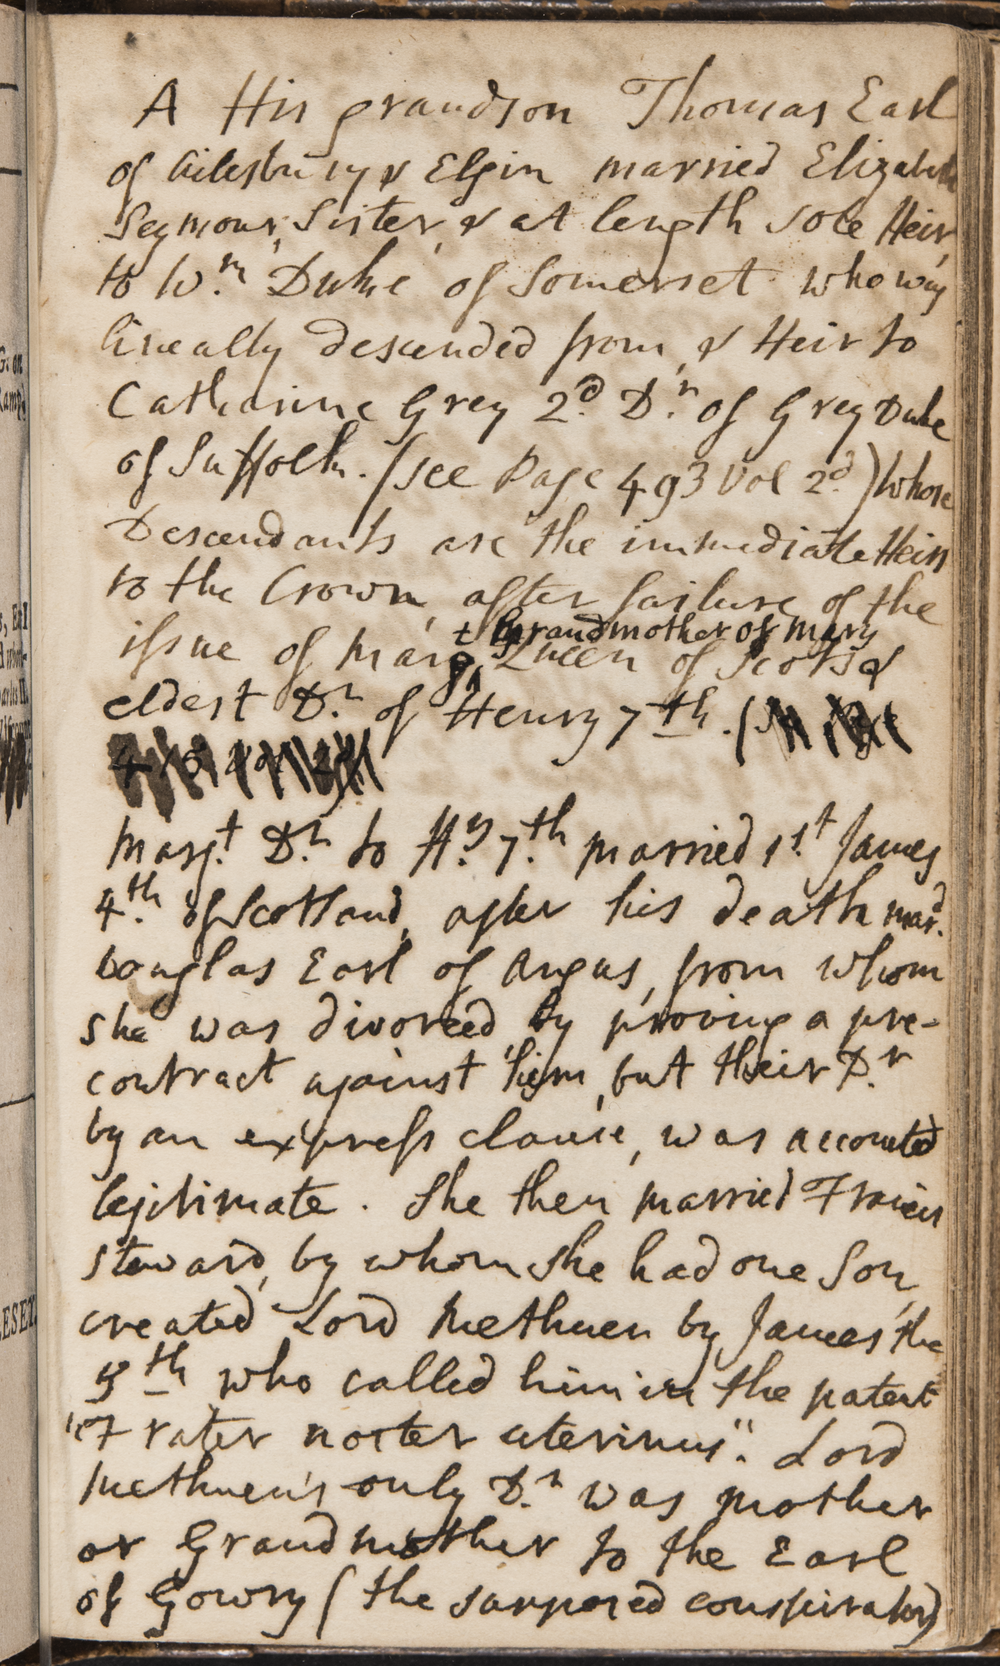 A His grandson Thomas Earl
of Ailesbury & Elgin married Elizabeth
Seymour, Sister, & at length sole Heir,
to Wm. Duke of Somerset who was
lineally descended from, & Heir to
Catharine Grey 2d. Dr. of Grey Duke
of Suffolk. (see Page 493 Vol 2d.) whose
Descendants are the immediate Heirs
to the Crown, after failure of the
+ Grandmother of Mary
issue of Marg.t Queen of Scots &
eldest Dr. of Henry 7th. (
Marg.t Dr. to Hy. 7th. married 1st. James
4th. of Scotland, after his death mard.
Douglas Earl of Angus, from whom
she was divorced by proving a pre-
contract against him, but their Dr.
by an express clause, was accounted
legitimate. She then married Francis
Steward, by whom she had one Son,
created Lord Methuen by James the
5th who called him in the patent
"Frater noster uterinus". Lord
Methuen's only Dr. was mother
or Grandmother to the Earl
of Gowry (the supposed conspirator)
G. on
Ramp